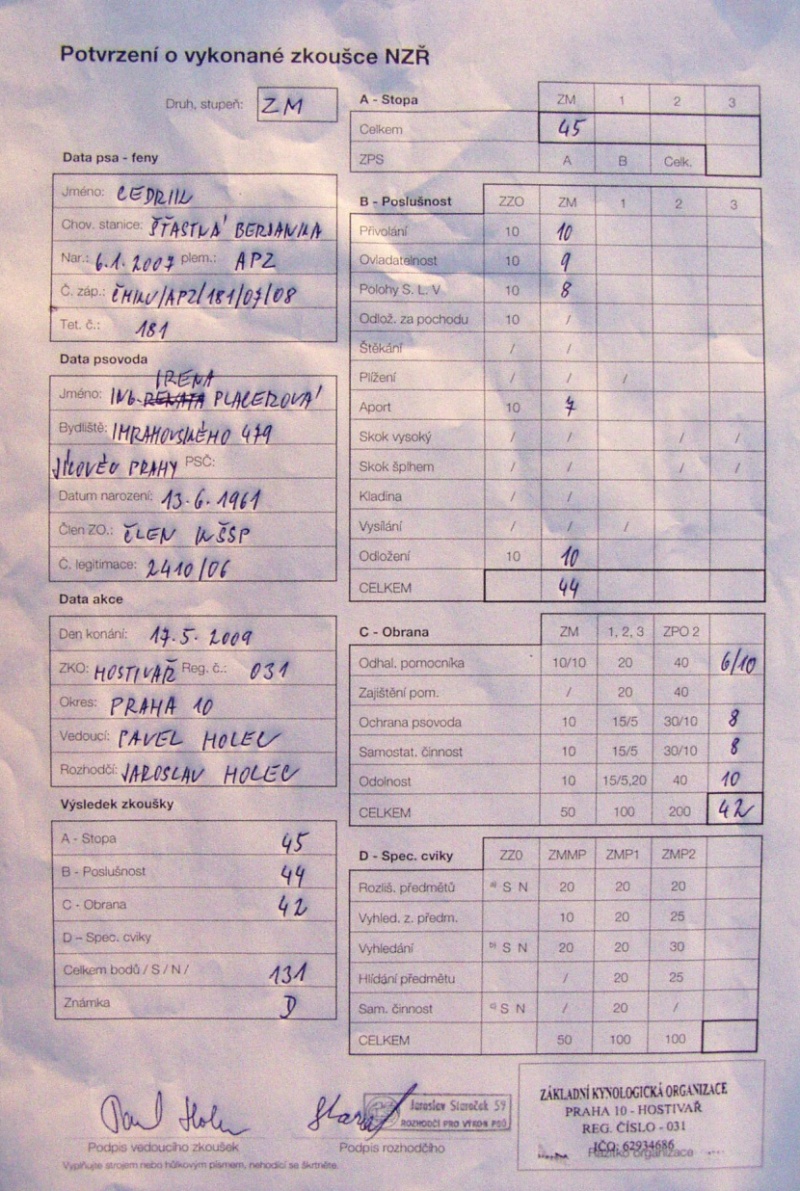 Potvrzení o vykonané zkoušce NZŘ
Druh, stupeň: ZM
Data psa - feny
Jméno: CEDRIK
Chov. stanice: ŠŤASTNÁ BERJANKA
Nar.: 6.1.2007 plem.: APZ
Č. záp.: ČMKU/APZ/181/07/08
Tet. č.: 181
Data psovoda
IRENA
Jméno: ING. RENATA PLACEROVÁ
Bydliště: 479
PRAHY PSČ:
Datum narození: 13.6.1961
Člen ZO.: ČLEN KŠSP
Č. legitimace: 2410/06
Data akce
Den konání: 17.5.2009
ZKO: HOSTIVAŘ Reg. č.: 031
Okres: PRAHA 10
Vedoucí: PAVEL HOLEC
Rozhodčí: JAROSLAV HOLEC
Výsledek zkoušky
A - Stopa 45
B - Poslušnost 44
C - Obrana 42
D – Spec. cviky
Celkem bodů / S / N / 131
Známka D
A - Stopa ZM 1 2 3
Celkem 45
ZPS A B Celk.
B - Poslušnost ZZO ZM 1 2 3
Přivolání 10 10
Ovladatelnost 10 9
Polohy S. L. V 10 8
Odlož. za pochodu 10 /
Štěkání / /
Plížení / / /
Aport 10 7
Skok vysoký / / / /
Skok šplhem / / / /
Kladina / /
Vysílání / / /
Odložení 10 10
CELKEM 44
C - Obrana ZM 1, 2, 3 ZPO 2
Odhal. pomocníka 10/10 20 40 6/10
Zajištění pom. / 20 40
Ochrana psovoda 10 15/5 30/10 8
Samostat. činnost 10 15/5 30/10 8
Odolnost 10 15/5,20 40 10
CELKEM 50 100 200 42
D - Spec. cviky ZZ0 ZMMP ZMP1 ZMP2
Rozliš. předmětů a) S N 20 20 20
Vyhled. z. předm. 10 20 25
Vyhledání b) S N 20 20 30
Hlídání předmětu / 20 25
Sam. činnost c) S N / 20 /
CELKEM 50 100 100
Jaroslav Staroček 59
ROZHODČÍ PRO VÝKON PSŮ
Podpis vedoucího zkoušek
Podpis rozhodčího
Vyplňujte strojem nebo hůlkovým písmem, nehodící se škrtněte.
ZÁKLADNÍ KYNOLOGICKÁ ORGANIZACE
PRAHA 10 - HOSTIVAŘ
REG. ČÍSLO - 031
IČO: 62934686
Razítko organizace